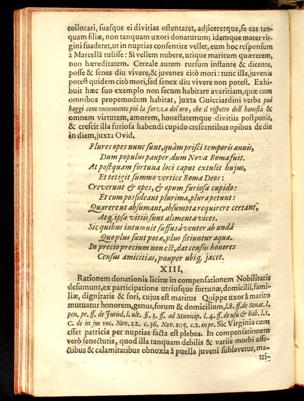 collocari, suasque ei divitias ostentaret, adjiceretque, se eas tan-
quam filiæ, non tanquam uxori donaturum; idemque mater vir-
gini suaderet, ut in nuptias consentire vellet, eum hoc responsum
à Marcella tulisse: Si vellem nubere, utique maritum quærerem,
non hæreditatem. Cereale autem rursum instante & dicente,
posse & senes diu vivere, & juvenes citò mori: tunc illa, juvenis
potest quidem citò mori, sed senex diu vivere non potest. Exhi-
buit hæc suo exemplo non secum habitare avaritiam, quæ cum
omnibus propemodum habitat, juxta Guicciardini verba può
hoggi communemente più la forza del oro, che il rispetto dell honestà &
omnem virtutem, amorem, honestatemque divitiis postponit,
& crescit illa furiosa habendi cupido crescentibus opibus de die
in diem, juxta Ovid.
Plures opes nunc sunt, quàm prisci temporis annis,
Dum populus pauper, dum Nova Roma fuit.
At postquam fortuna loci caput extulit hujus,
Et tetigit summo vertice Roma Deos:
Creverunt & opes, & opum furiosa cupido:
Et cum possideant plurima, plura petunt:
Quærere ut absumant, absumpta requirere certant,
Atq; ipsæ vitiis sunt alimenta vices.
Sic quibus intumuit suffusâ venter ab undâ
Quo plus sunt potæ, plus sitiuntur aquæ.
In precio precium non est, dat census honores
Census amicitias, pauper ubiq; jacet.
XIII.
Rationem donationis licitæ in compensationem Nobilitatis
desumunt, ex participatione utriusque fortunæ, domicilii, fami-
liæ, dignitatis & fori, cujus est maritus Quippe uxor à marito
mutuatur honorem, genus, forum & domicilium,
C. de in jus voc. Nov. 22. c. 36. Nov. 105. c. 2. in pr. Sic Virginia cum
esset patricia per nuptias facta est plebea. In compensationem
verò senectutis, quod illa tanquam debilis & variis morbi affe-
ctibus & calamitatibus obnoxia à puella juveni sublevetur, ma-
tri-